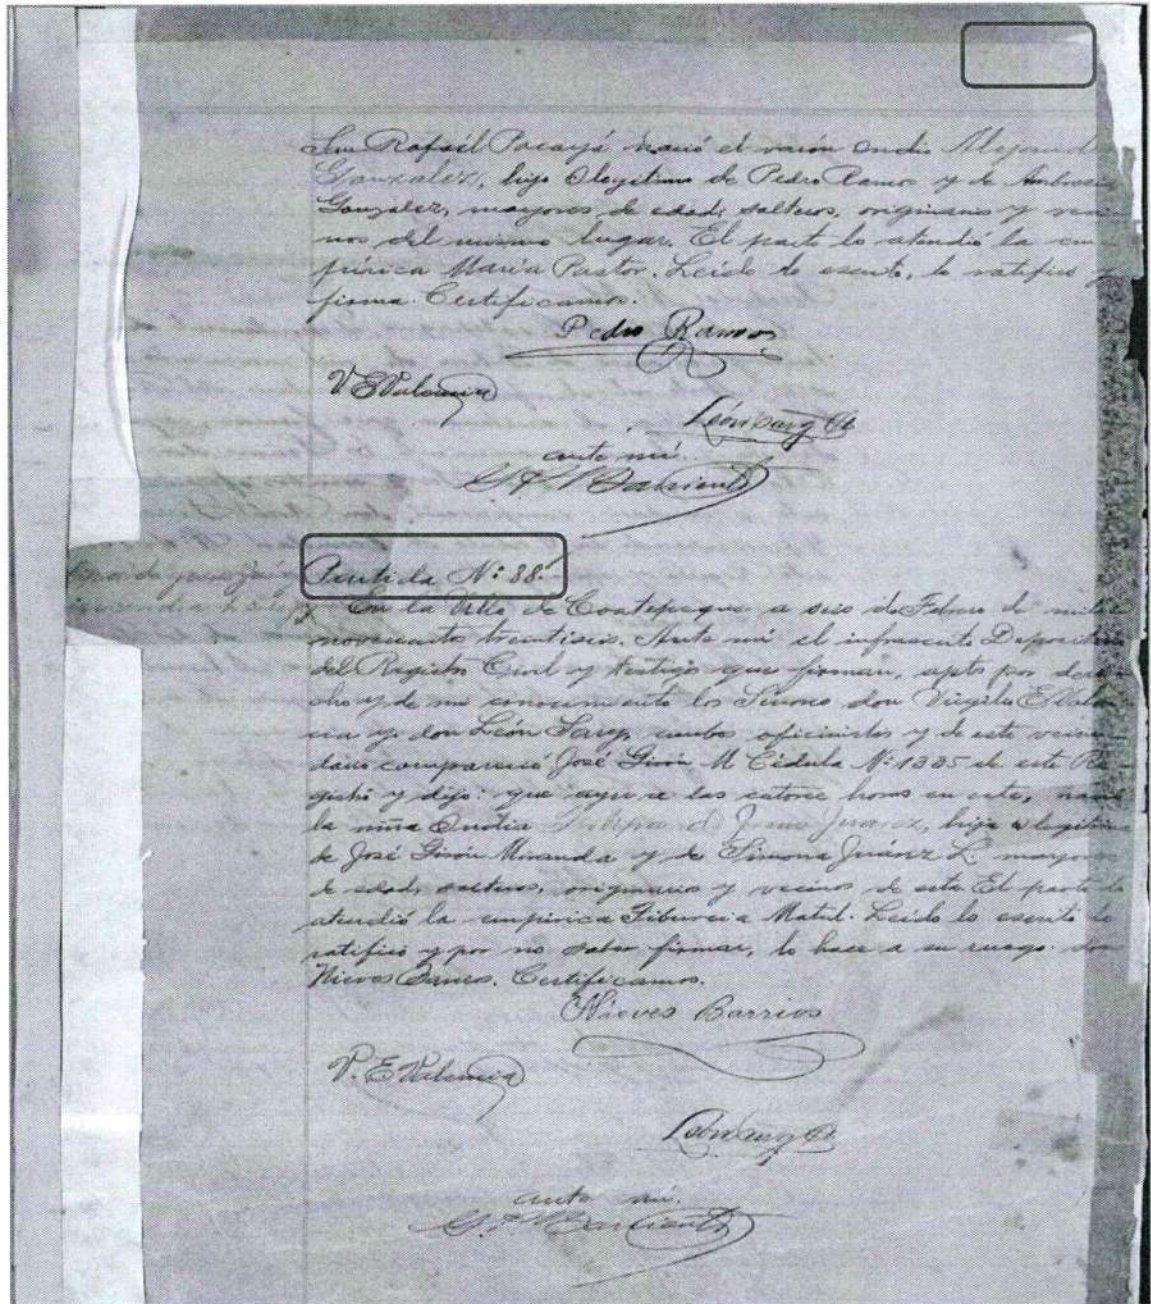 San Rafaél Pacayá nació el varón indio Alejand
Gonzalez, hijo ilegitimo de Pedro Ramos y de Ambrosia
Gonzalez, mayores de edad, solteros, originario y veci-
nos del mismo lugar. El parto lo atendió la em-
pírica María Pastor. Leído lo escrito, lo ratificó y
firma. Certificamos.
Pedro Ramos
V. E Valencia
León Sarg
ante mí.
Barrientos
Partida Nº 88.
En la Villa de Coatepeque a seis de Febrero de mil
novecientos treintiseis. Ante mí el infrascrito Depositario
del Registro Civil y testigos que firman, aptos por dere-
cho y de mi conocimiento los Señores don Virgilio E Valen-
cia y don León Sarg, ambos oficinistas y de este vecin-
dario compareció José Girón M Cédula Nº 1335 de este Re-
gistro y dijo: que ayer a las catorce horas en esta, nació
la niña Juarez, hija ilegitima
de José Girón Miranda y de Simona Juárez L. mayores
de edad, solteros, originarios y vecinos de esta. El parto lo
atendió la empírica Tiburcia Matul. Leído lo escrito lo
ratificó y por no saber firmar, lo hace a su ruego don
Nieves Barrios. Certificamos.
Nieves Barrios
V. E Valencia
León Sarg
ante mí.
Barrientos